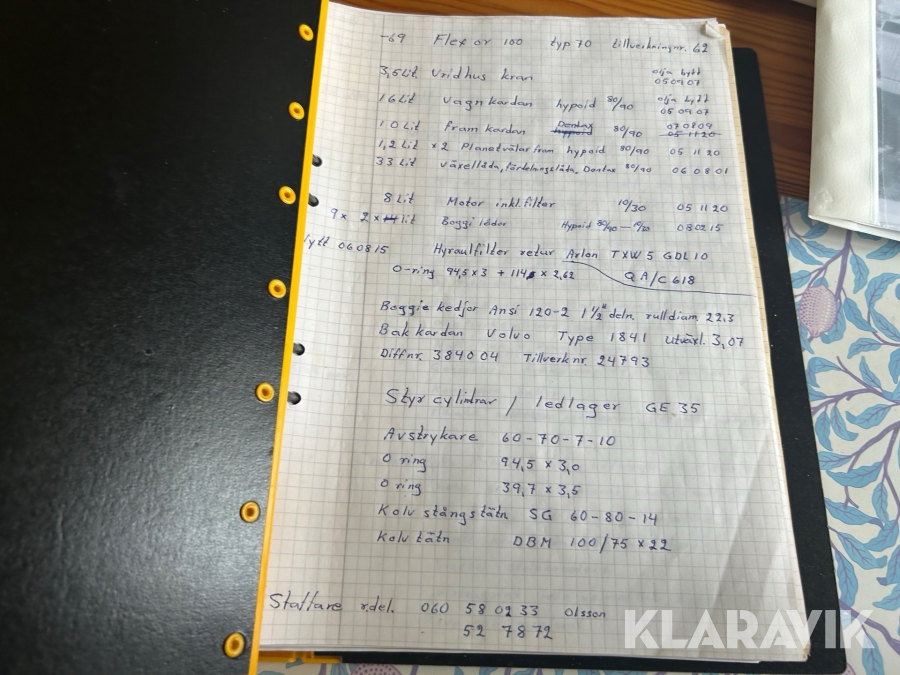 -69 Flex or 100 typ 70 tillverkningnr. 62
3,5 Lit Vridhus kran olja bytt 050907
16 Lit vagn kardan hypoid 80/90 olja bytt 050907
10 Lit fram kardan Dentax hypoid 80/90 070809 051120
1,2 Lit x 2 Planetväxlar fram hypoid 80/90 051120
33 Lit växellåda, fördelningslåda, Dentax 80/90 060801
8 Lit Motor inkl. filter 10/30 051120
9 x 2 x lit Boggi lådor Hypoid 80/90 — 080215
bytt 060815 Hyraulfilter retur Arlon TXW5 GDL10
O-ring 94,5 x 3 + 114, x 2,62 QA/C618
Boggie kedjor Ansi 120-2 1 1/2" deln. rulldiam 22.3
Bak kardan Volvo Type 1841 utväxl. 3,07
Diffnr. 384004 Tillverknr. 24793
Styr cylindrar / ledlager GE 35
Avstrykare 60-70-7-10
O ring 94,5 x 3,0
O ring 39,7 x 3,5
Kolv stångstätn SG 60-80-14
Kolv tätn DBM 100/75 x 22
r.del. 060 58 02 33 Olsson
52 78 72
KLARAVIK